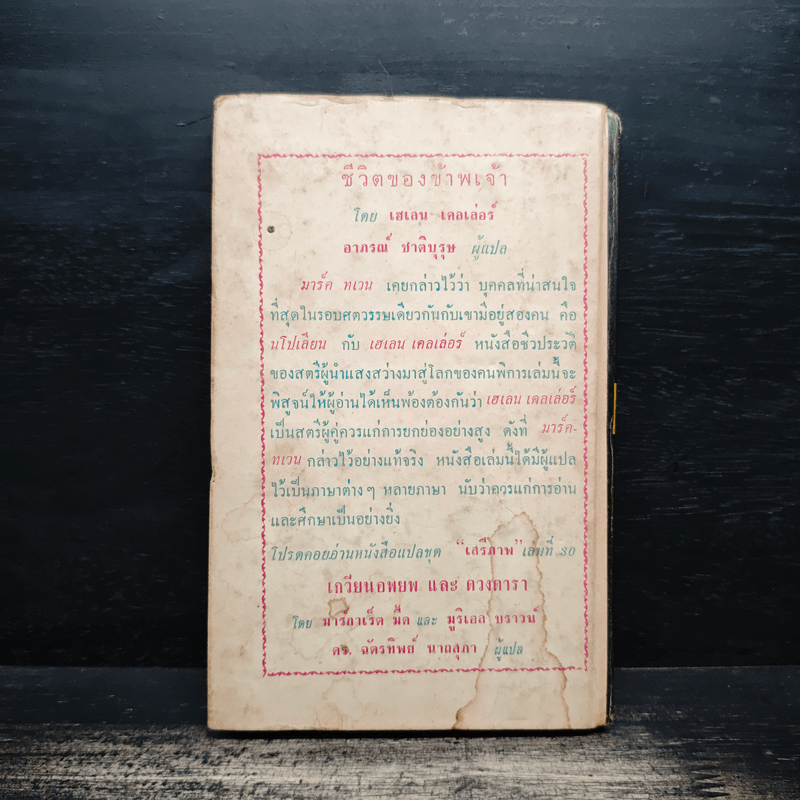 ชีวิตของข้าพเจ้า
โดย เฮเลน เคลเล่อร์
อาภรณ์ ชาติบุรุษ ผู้แปล
มาร์ค ทเวน เคยกล่าวไว้ว่า บุคคลที่น่าสนใจ
ที่สุดในรอบศตวรรษเดียวกันกับเขามีอยู่สองคน คือ
นโปเลียน กับ เฮเลน เคลเล่อร์ หนังสือชีวประวัติ
ของสตรีผู้นำแสงสว่างมาสู่โลกของคนพิการเล่มนี้จะ
พิสูจน์ให้ผู้อ่านได้เห็นพ้องต้องกันว่า เฮเลน เคลเล่อร์
เป็นสตรีผู้คู่ควรแก่การยกย่องอย่างสูง ดังที่ มาร์ค-
ทเวน กล่าวไว้อย่างแท้จริง หนังสือเล่มนี้ได้มีผู้แปล
ไว้เป็นภาษาต่าง ๆ หลายภาษา นับว่าควรแก่การอ่าน
และศึกษาเป็นอย่างยิ่ง
โปรดคอยอ่านหนังสือแปลชุด “เสรีภาพ” เลขที่ 30
เกวียนอพยพ และ ดวงดารา
โดย มาร์กาเร็ต มี้ด และ มูริเอล บราวน์
ดร. ฉัตรทิพย์ นาถสุภา ผู้แปล